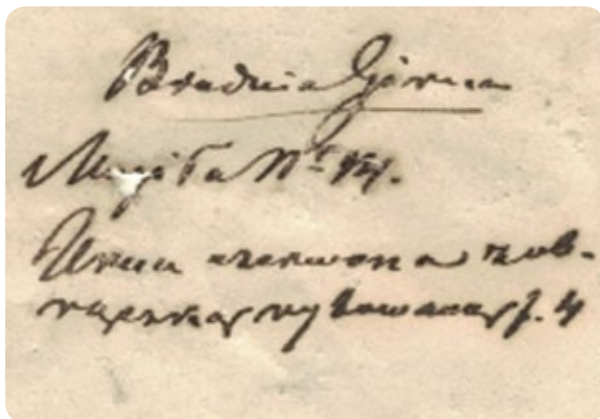 Brudnia Górna
Mogiła № 14.
Urna czerwona z ob-
rączką rytowaną f. 4